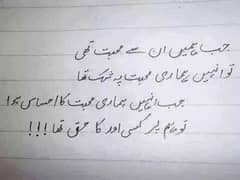 جب ہمیں ان سے محبت تھی
تو انہیں ہماری محبت پہ شک تھا
جب انہیں ہماری محبت کا احساس ہوا
تو ہم پر کسی اور کا حق تھا !!!